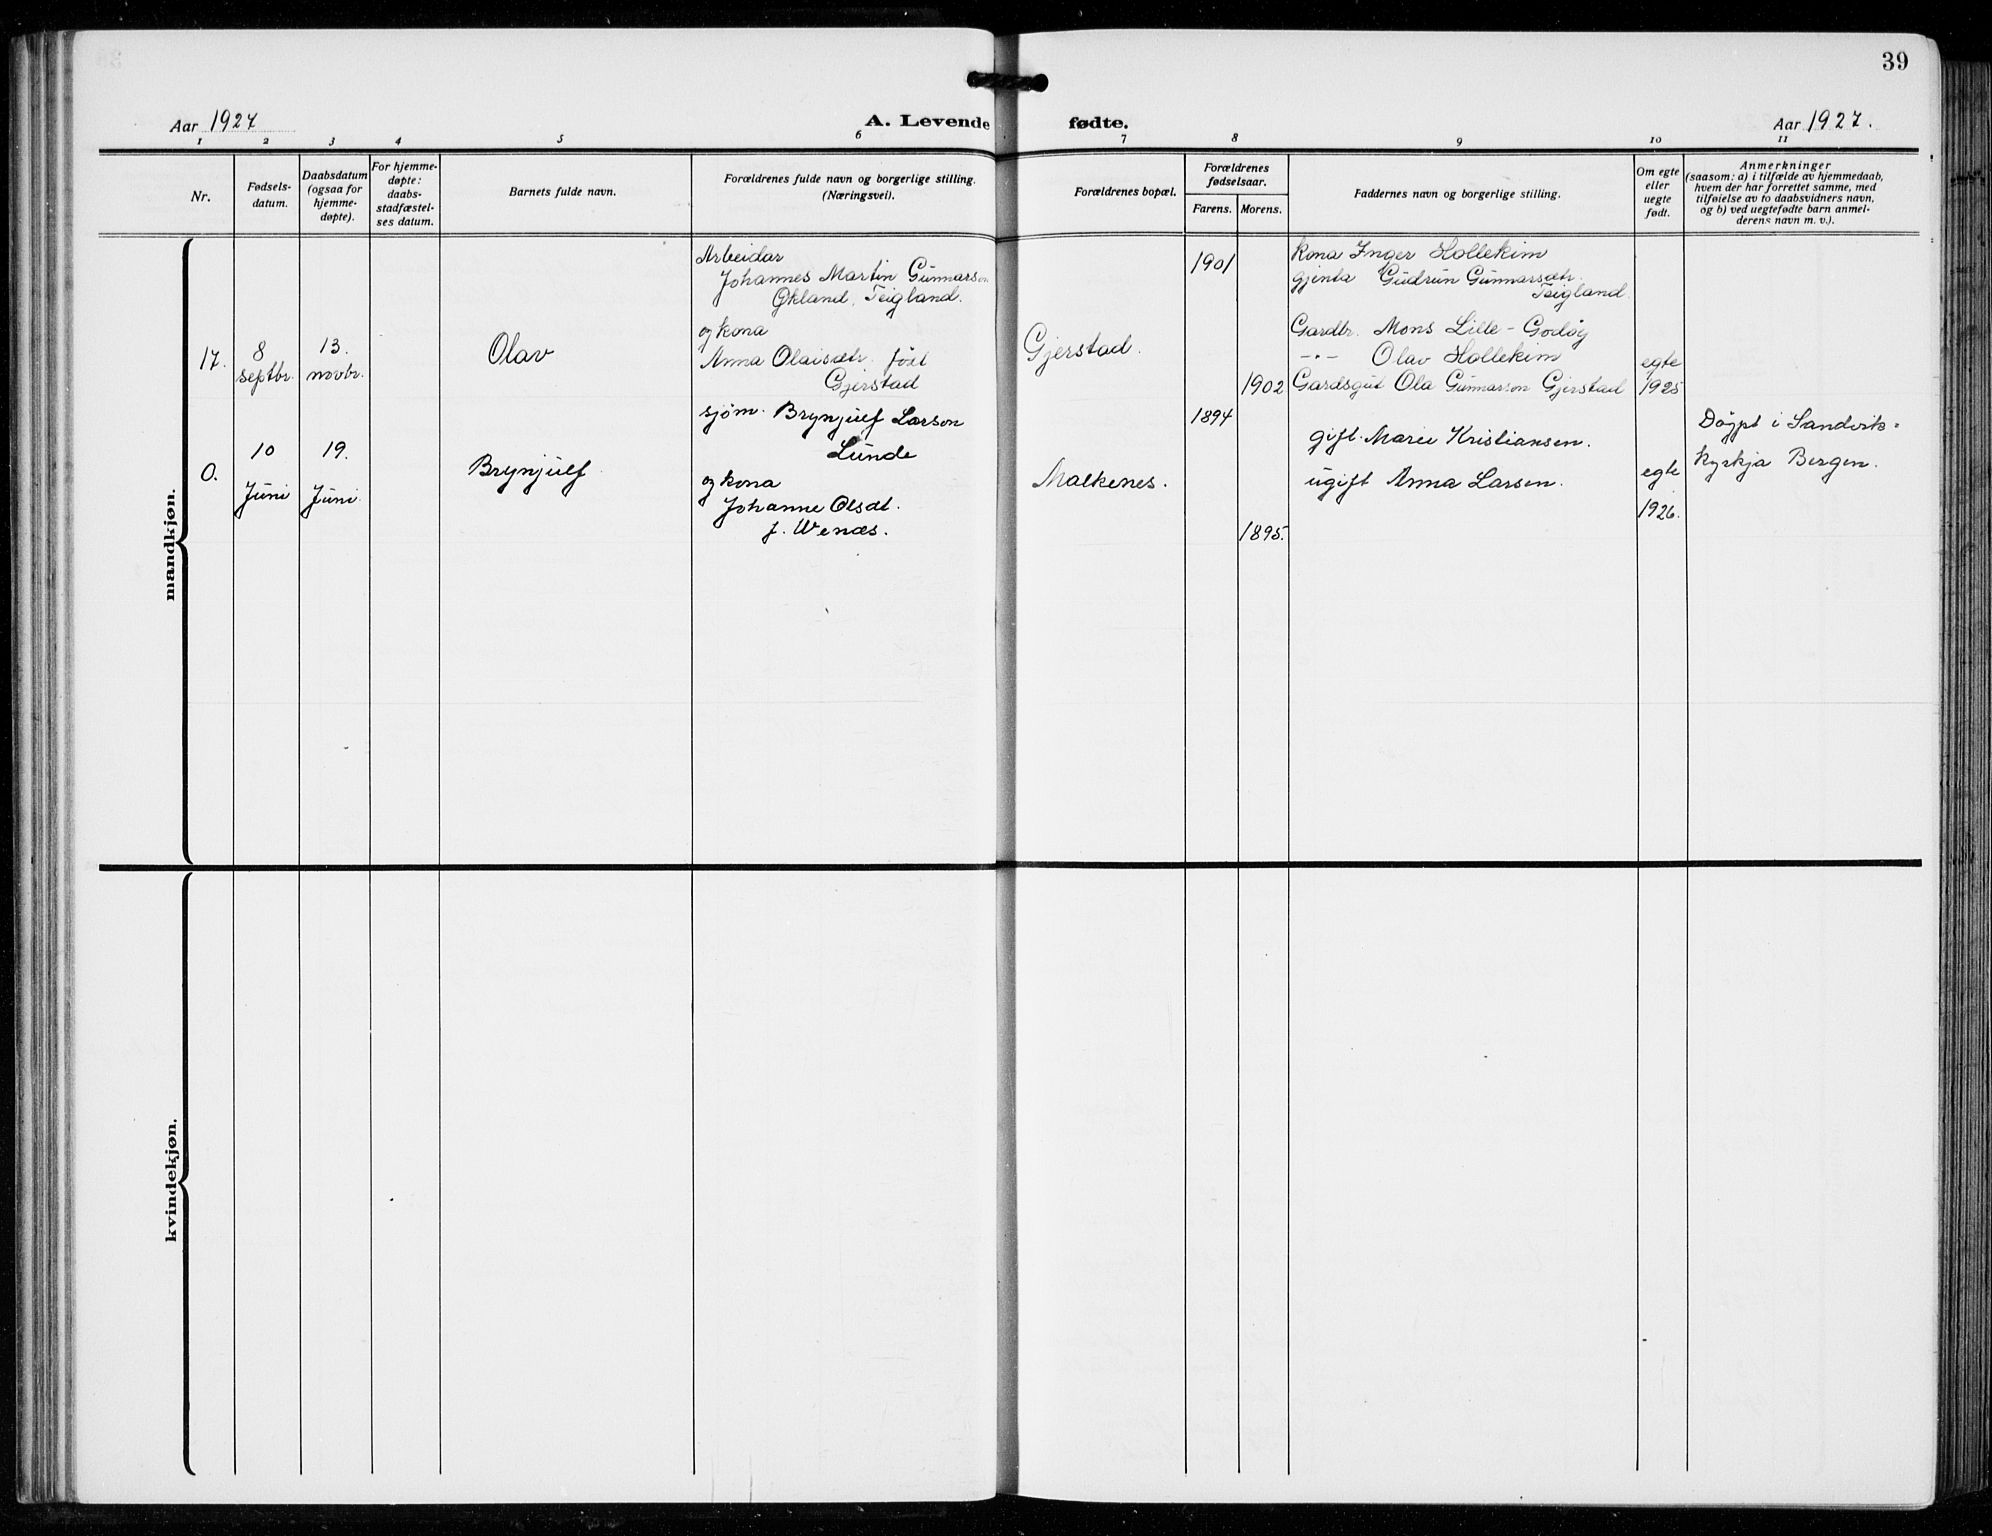 39
Aar 1927
A. Levende fødte.
Aar 1927.
1 2 3 4 5 6 7 8 9 10 11
Nr.
Fødsels-
datum.
Daabsdatum
(ogsaa for
hjemme-
døpte).
For hjemme-
døpte:
daabs-
stadfæstel-
ses datum.
Barnets fulde navn.
Forældrenes fulde navn og borgerlige stilling.
(Næringsvei).
Forældrenes bopæl.
Forældrenes
fødselsaar.
Farens. Morens.
Faddernes navn og borgerlige stilling.
Om egte
eller
uegte
født.
Anmerkninger
(saasom: a) i tilfælde av hjemmedaab,
hvem der har forrettet samme, med
tilføielse av to daabsvidners navn,
og b) ved uegtefødte barn anmel-
derens navn m. v.).
mandkjøn.
17.
8
septbr.
13.
novbr.
Olav
Arbeidar
Johannes Martin Gunnarson
Økland, Teigland.
og kona
Anna Olaisdtr. født
Gjerstad
Gjerstad.
1901
1902
Kona Inger Hollekim
Gjenta Gudrun Gunnarsdtr.
Teigland.
Gardbr. Mons Lille-Godøy
-"- Olav Hollekim
Gardsgut Ola Gunnarson Gjerstad
egte
1925
0.
10
Juni
19.
Juni.
Brynjulf
sjøm. Brynjulf Larson
Lunde
og kona
Johanne Olsdt.
f. Wenæs.
Malkenes.
1894
1895.
gift. Marie Kristiansen.
ugift Anna Larsen.
egte
1926.
Døypt i Sandvik-
kyrkja Bergen.
kvindekjøn.